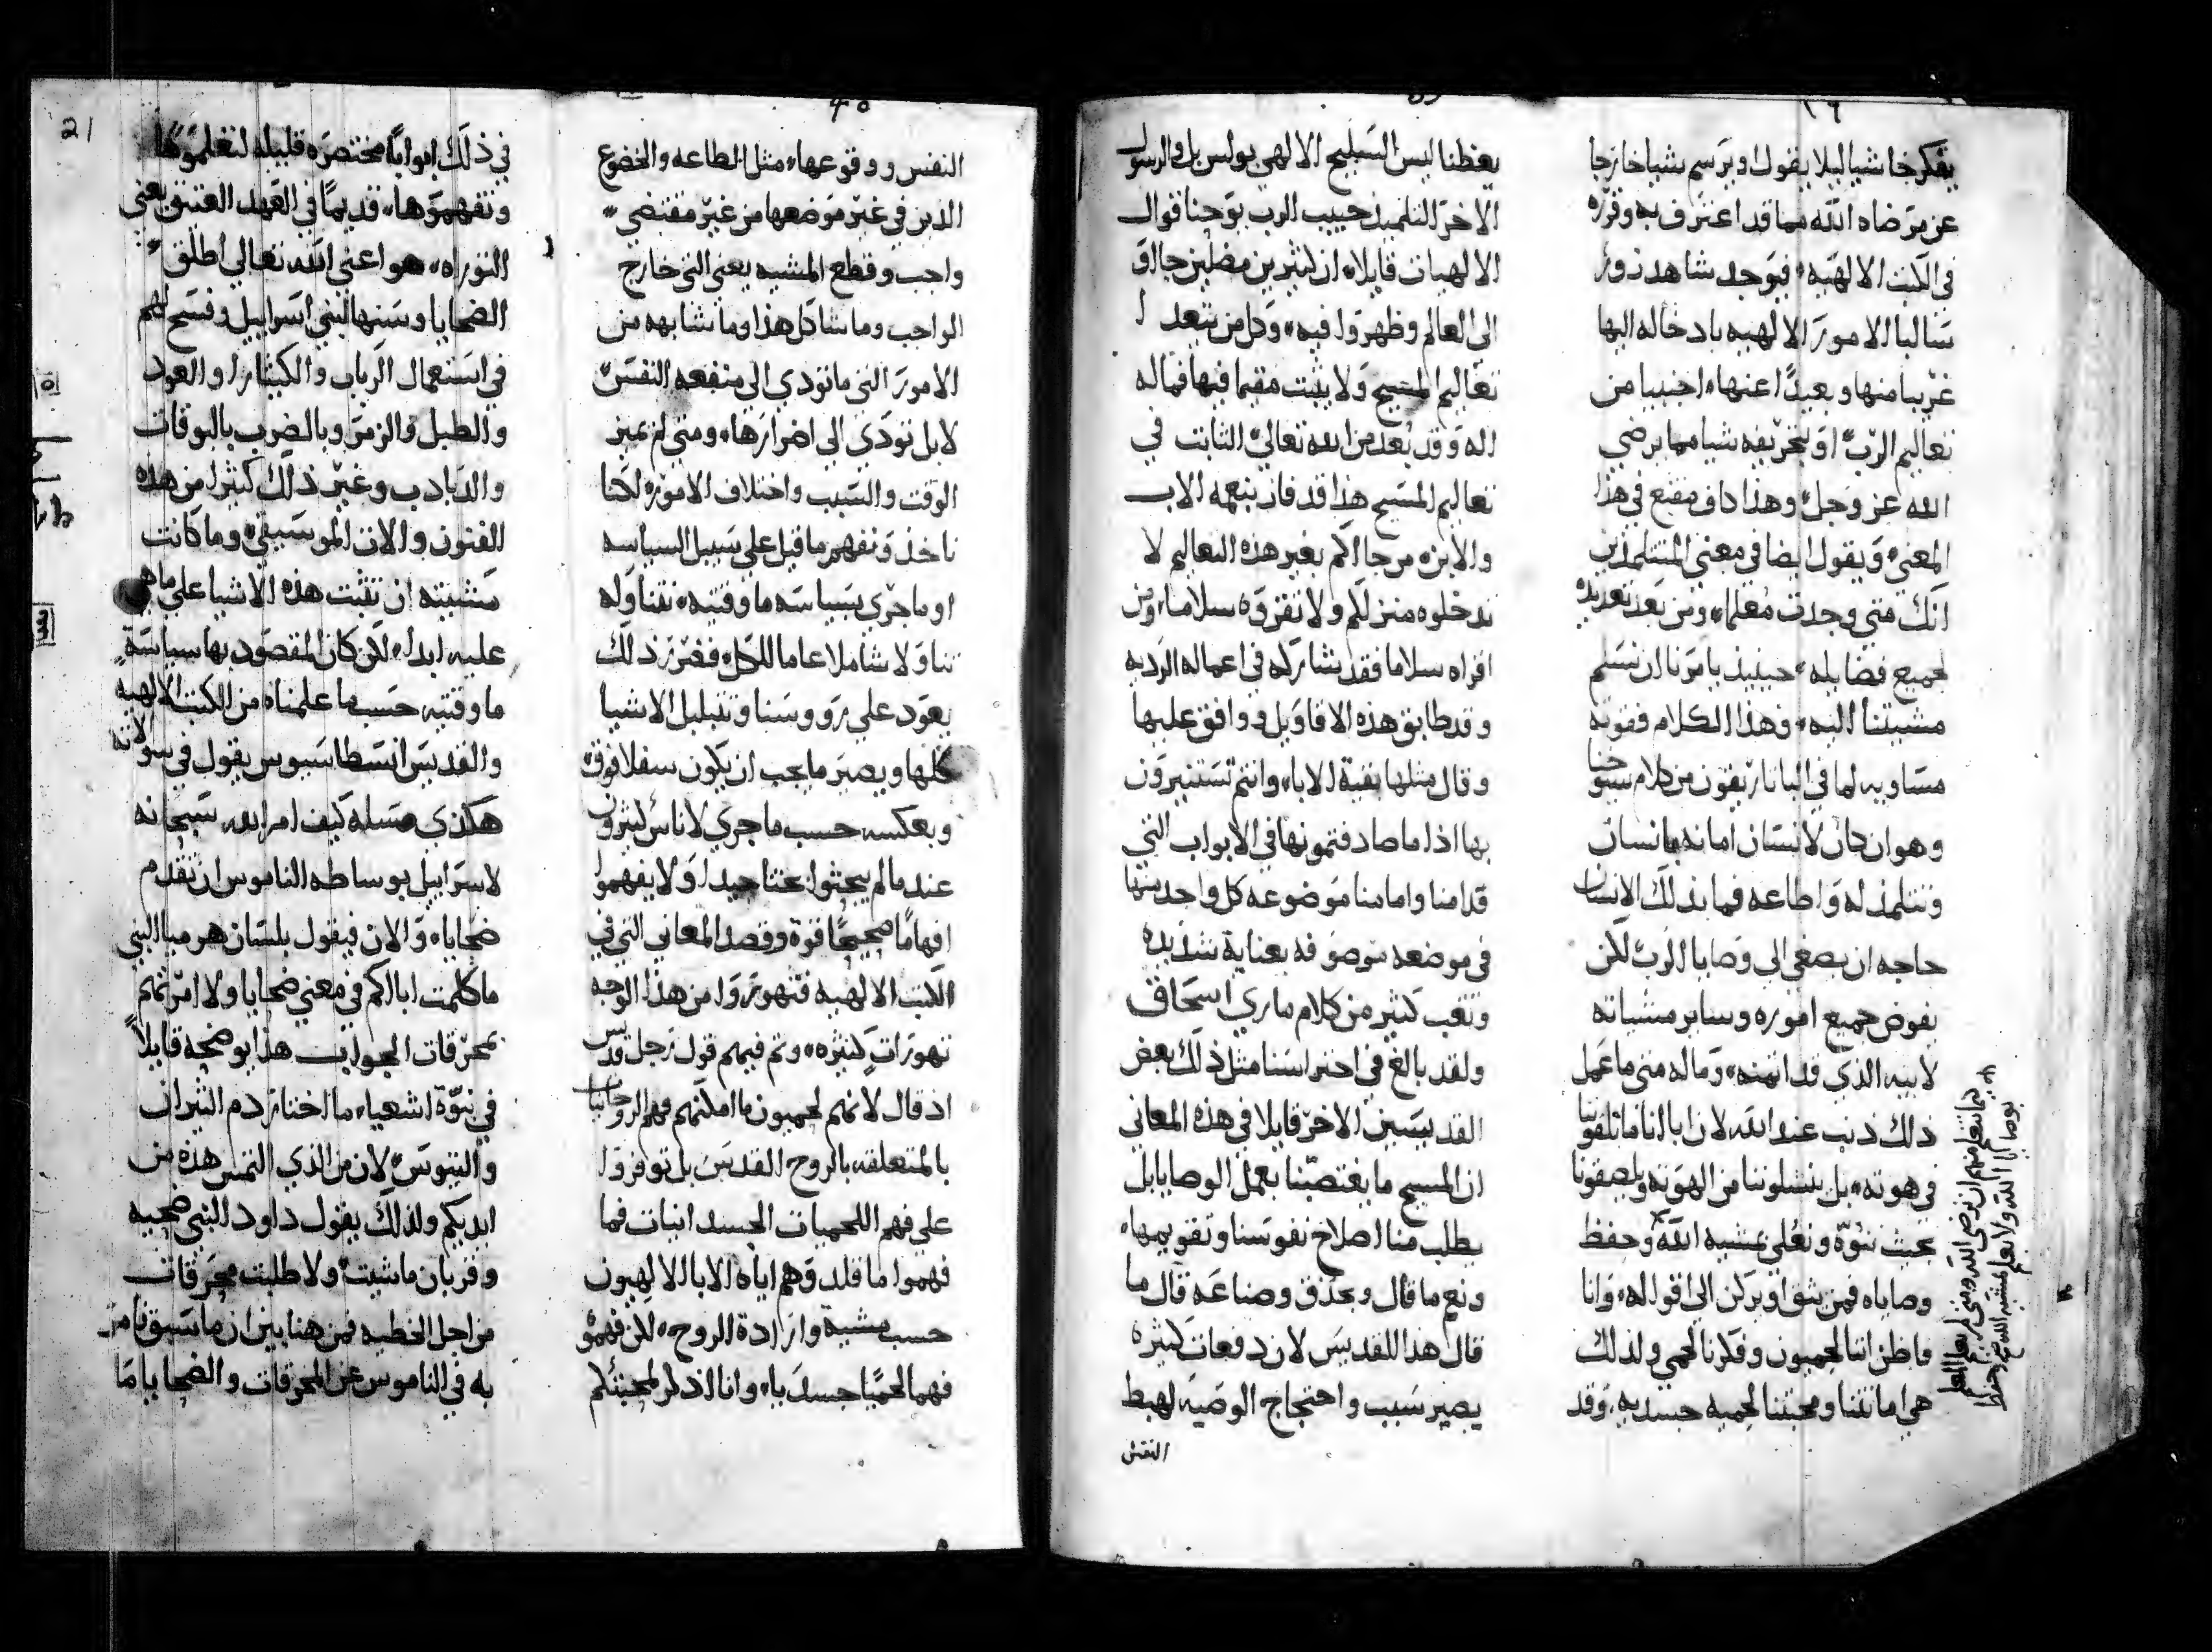 يفكر خاشيا ليلا يقول او يرسم شيا خارجا
عن مرضاه الله مما قد اعترف به وقرره
في الكتب الالهيه، فيوجد شاهد زور
سالبا الامور الالهيه بادخاله اليها
غريبا منها وبعيدًا عنها، اجنبيا من
تعاليم الربّ او بتحريفه شيا مما يرضي
الله عز وجل، وهذا كاف مقنع في هذا
المعنى، ويقول ايضا في معنى المتتلمذين
انك متى وجدت مُعلما، ومن بعد تعديده
لجميع فضايله، حينيذ يامرنا ان نسلم
مشيتنا اليه، فهذا الكلام فقوته
مساويه لما في البانارتيقون من كلام سيوحنا
وهو ان كان لانسان امانه بانسان
وتتلمذ له واطاعه فما بذلك الانسان
حاجه ان يصغي الى وصايا الربّ لكن
يفوض جميع اموره وساير مشياته
لابيه الذي قد اتمنه، وماله متى ما عمل
ذلك ذنب عند الله لان ابانا ما تلقونا
في هوته، بل ينشلوننا من الهوته ويلصقونا
بحيث ننوّه ونعُلى بمشيه الله وحفظ
وصاياه فمن يثق او يركن الى اقواله، وانا
فاظن اننا لحميون وفكرنا لحمي ولذلك
هي امانتنا ومحبتنا لحميه جسديه، وقد
يعظنا ليس السليح الالهي بولس بل والرسول
الاخر التلميذ حبيب الرب يوحنا قوال
الالهيات قايلا، ان كثيرين مضلين جااو
الى العالم وظهروا فيه، وكل من يتعدا
تعاليم المسيح ولا يثبت مقيما فيها فماله
اله وقد بُعد من الله تعالى، الثابت في
تعاليم المسيح هذا قد فاز بنعمه الاب
والابن، من جااكم بغير هذه التعاليم لا
تدخلوه منزلكم ولا تقروه سلاما، ومن
اقراه سلاما فقد شاركه في اعماله الرديه
وقد طابق هذه الاقاويل ووافق عليها
وقال مثلها بقية الابا، وانتم تستنيرون
بها اذا ما صادفتموها في الابواب التي
قدامنا وامامنا موضوعه كل واحد منها
في موضعه موصوفه بعناية شديده
وتعب كثير من كلام ماري اسحاق
ولقد بالغ في احتراسنا مثل ذلك بعض
القديسين الاخر قايلا في هذه المعاني
ان المسيح ما يغتصبّنا بعمل الوصايا بل
يطلب منا اصلاح نفوسنا وتقويمها،
ونعم ما قال وبحذق وصناعه قال ما
قال هذا القديس لان دفعات كثيره
يصير سبب واحتجاج الوصيه لهبط
النفس
النفس ووقوعها، مثل الطاعه والخضوع
الذين في غير موضعها من غير مقتضى
واجب وقطع المشيه يعنى التي خارج
الواجب وما شاكل هذا وما شابهه من
الامور التي ما تودي الى منفعه النفس
لا بل تودي الى اضرارها، ومتى لم نميز
الوقت والسبب واختلاف الامور، لكنا
ناخذ ونفهم ما قيل على سبيل السياسه
او ما جرى بسياسه ما وقتيه، نتناوله
تناولا شاملا عاما للكل، فضرر ذلك
يعود على رووسنا وتتبلبل الاشيا
كلها ويصير ما يجب ان يكون سفلا فوق،
وبعكسه حسب ما جرى لاناس كثيرون
عندما لم يبحثوا بحثا جيدا ولا يفهموا
افهامًا صحيحًا قوة وقصد المعاني التي في
الكتب الالهيه فتهوروا من هذا الوجه
تهورات كثيره، وثم فيهم قول رجل قديس
اذ قال لانهم لحميون ما امكنهم فهم الروحانيات
بالمتعلقه بالروح القدس بل توفروا
على فهم اللحميات الجسدانيات فما
فهموا ما قلد وهم اياه الابا الالهيون
حسب مشية وارادة الروح، لكن فهموه
فهما لحميًا جسديا، وانا اذكر لمحبتكم
في ذلك ابوابًا مختصره قليله لتعلموها
وتفهموها، قديمًا في العهد العتيق يعنى
التوراه، هو اعنى الله تعالى اطلق
الضحايا وسنها لبني اسراييل وفسح لهم
في استعمال الرباب والكيثارا والعود
والطبل والزمر وبالضرب بالبوقات
والدبادب وغير ذلك كثيرا من هذه
الفنون والات الموسيقى، وما كانت
مشييته ان تثبت هذه الاشيا على ما هي
عليه ابدا، لكن كان المقصود بها سياسةً
ما وقتيه حسب ما علمناه من الكتب الالهيه
والقديس انسطاسيوس يقول في سولاته
هكذي مسله كيف امر الله سبحانه
لاسراييل بوساطه الناموس ان تقدم
ضحايا، والان فيقول بلسان هرميا النبي
ما كلمت ابااكم في معنى ضحايا ولا امرتهم
بمحرقات الجواب هذا يوضحه قايلاً
في نبوّة اشعيا، ما اختار دم الثيران
والتيوس، لان من الذي التمس هذه من
ايديكم ولذلك يقول داود النبي ضحيه
وقربان ما شيت، ولا طلبت محرقات
من اجل الخطيه فمن هنا يبين ان ما سبق نامر
به في الناموس عن المحرقات والضحايا ما
21